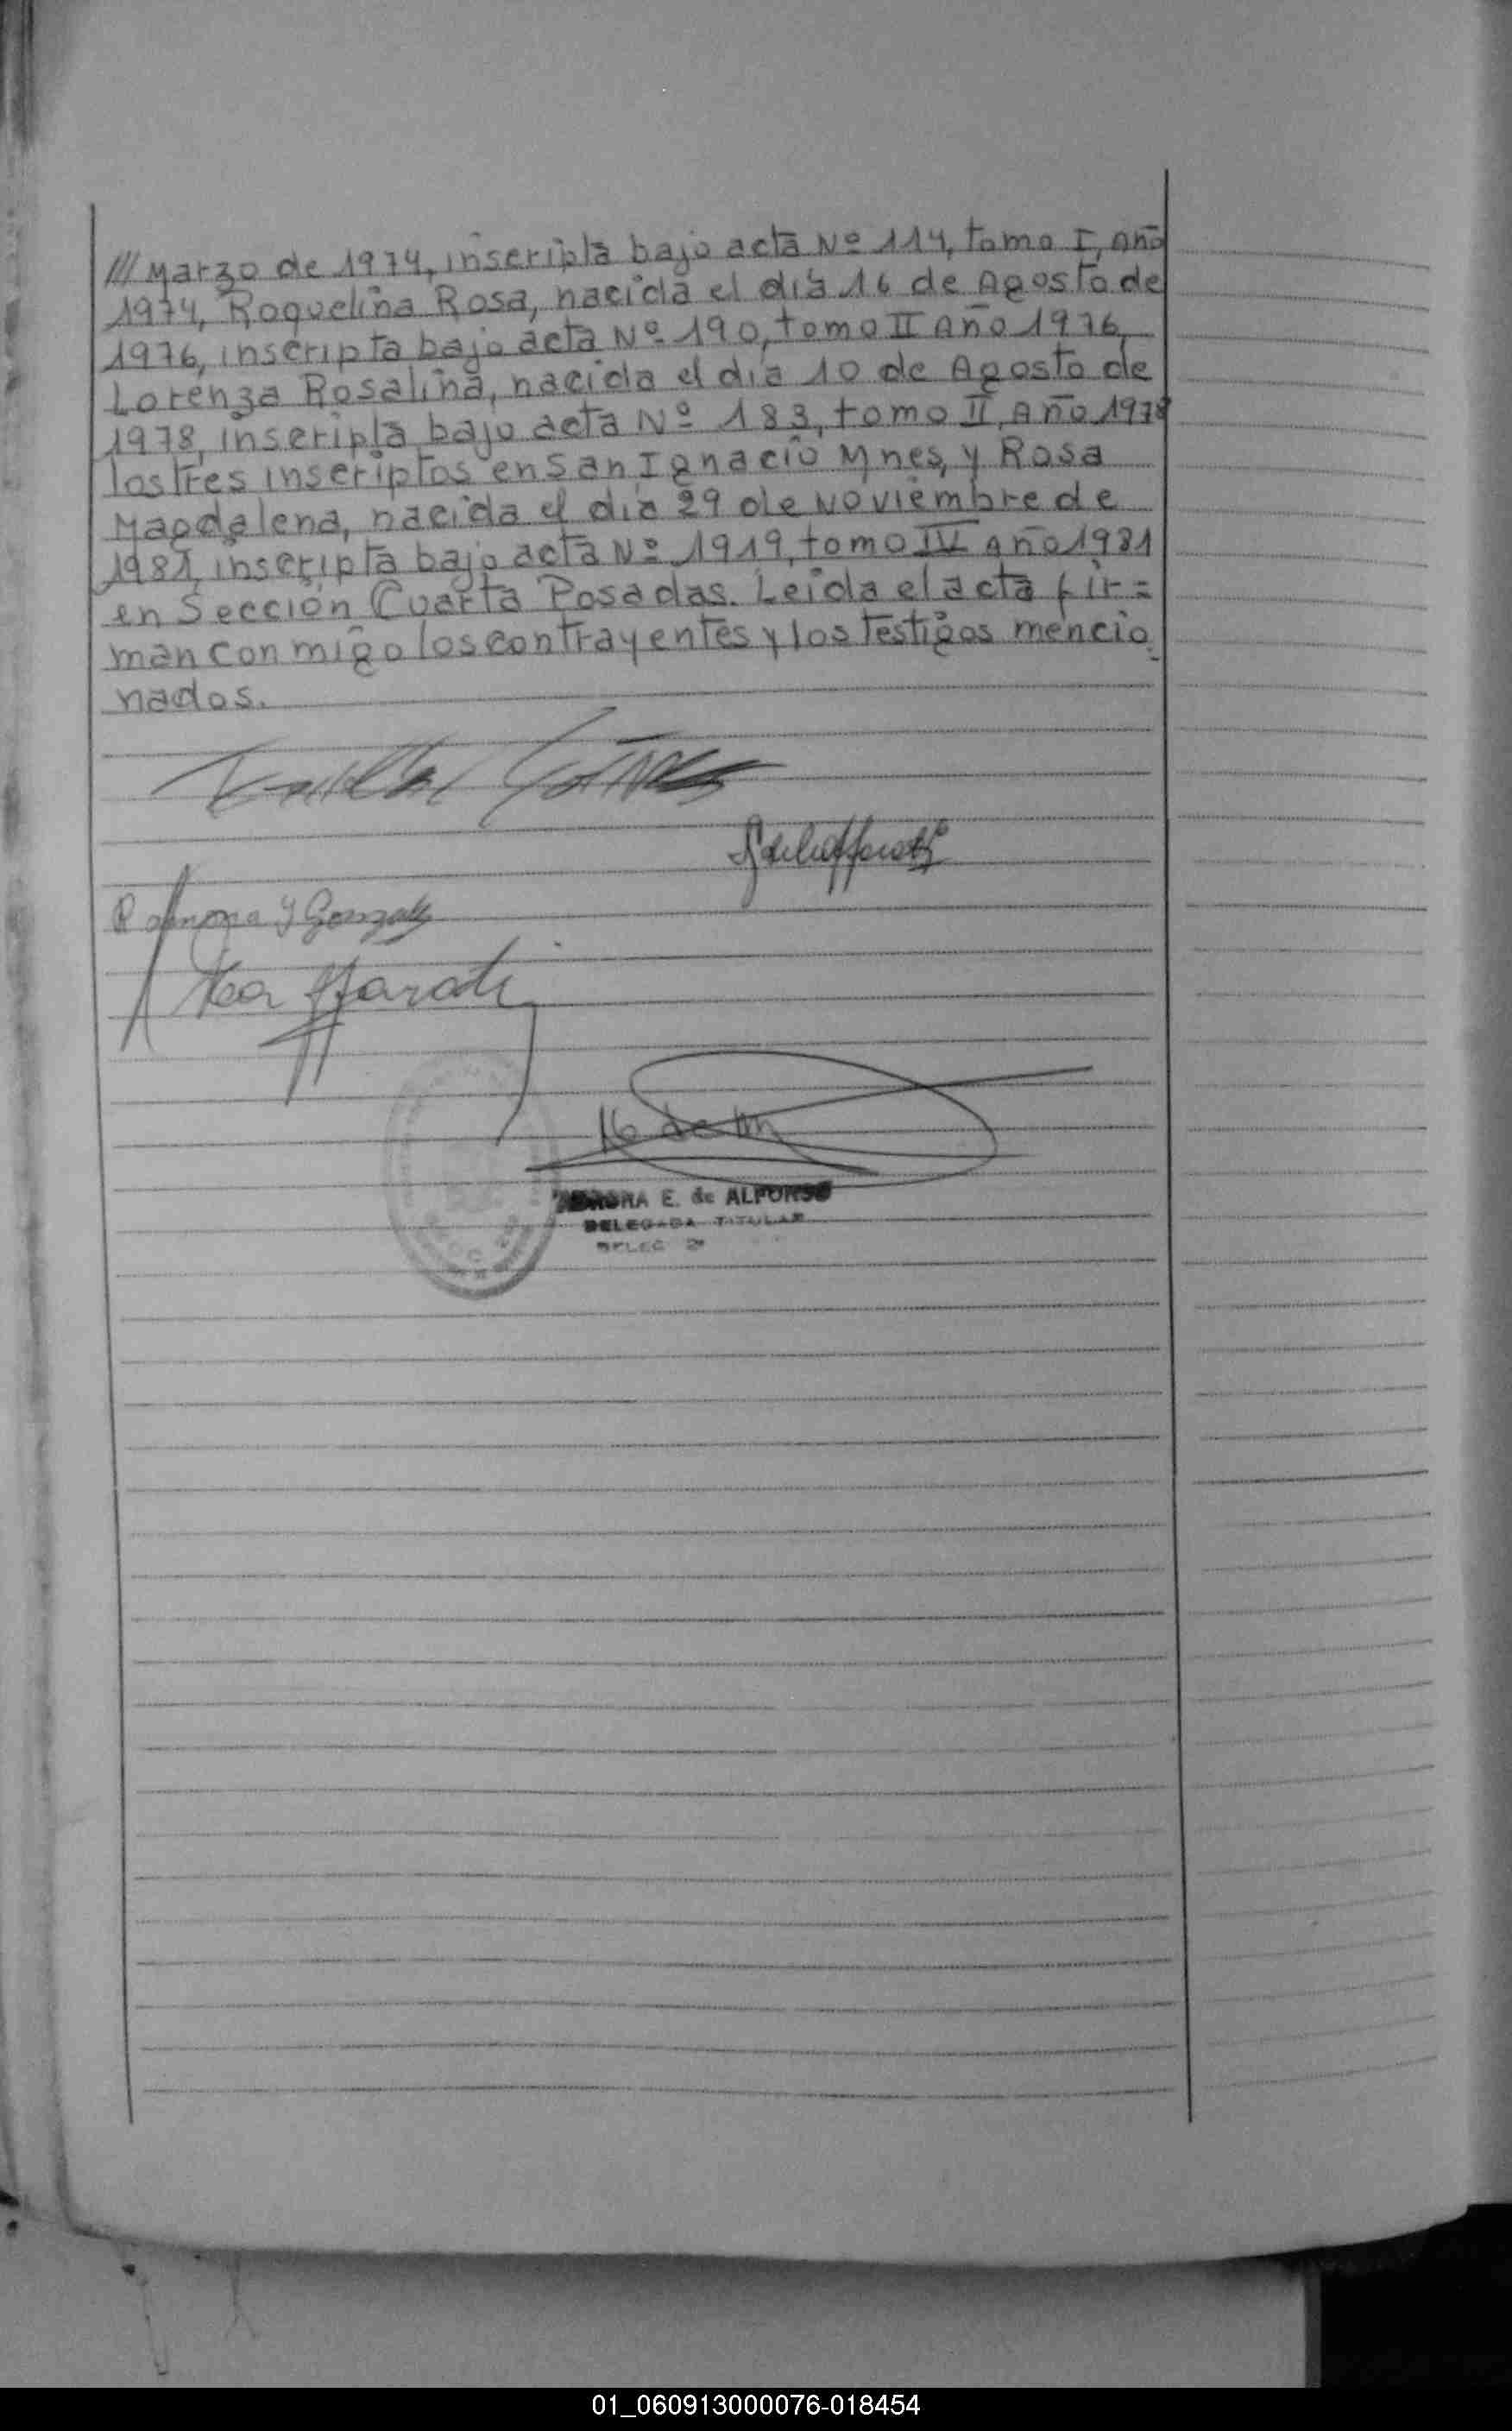 /// Marzo de 1974, inscripta bajo acta Nº 114, tomo I, Año
1974, Roquelina Rosa, nacida el día 16 de Agosto de
1976, inscripta bajo acta Nº 190, tomo II Año 1976,
Lorenza Rosalina, nacida el día 10 de Agosto de
1978, inscripta bajo acta Nº 183, tomo II, Año 1978
los tres inscriptos en San Ignacio Mnes, y Rosa
Magdalena, nacida el día 29 de Noviembre de
1981, inscripta bajo acta Nº 1919, tomo IV Año 1981
en Sección Cuarta Posadas. Leida el acta fir=
man con migo los contrayentes y los testigos mencio
nados.
Ramona Y Gonzalez
E. de ALFONSO
DELEGADA TITULAR
DELEG 2ª
01_060913000076-018454